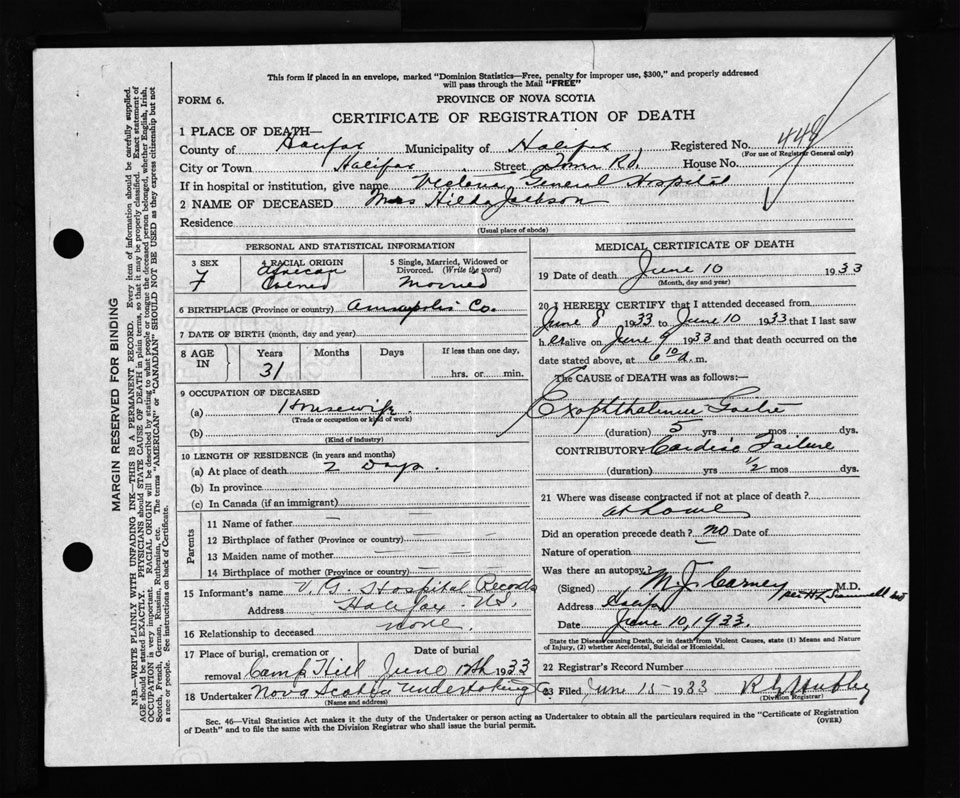 This form if placed in an envelope, marked "Dominion Statistics—Free, penalty for improper use, $300," and properly addressed
will pass through the Mail "FREE"
FORM 6.
PROVINCE OF NOVA SCOTIA
CERTIFICATE OF REGISTRATION OF DEATH
1 PLACE OF DEATH—
County of Halifax Municipality of Halifax Registered No. 448
(For use of Registrar General only)
City or Town Halifax Street Rd. House No.
If in hospital or institution, give name Victoria General Hospital
2 NAME OF DECEASED Mrs Hilda Jackson
Residence
(Usual place of abode)
PERSONAL AND STATISTICAL INFORMATION
3 SEX
F
4 RACIAL ORIGIN
African
5 Single, Married, Widowed or
Divorced. (Write the word)
Married
6 BIRTHPLACE (Province or country) Annapolis Co.
7 DATE OF BIRTH (month, day and year)
8 AGE
IN
Years Months Days If less than one day,
31
hrs. or min.
9 OCCUPATION OF DECEASED
(a) Housewife.
(Trade or occupation or kind of work)
(b)
(Kind of industry)
10 LENGTH OF RESIDENCE (in years and months)
(a) At place of death 2 Days.
(b) In province
(c) In Canada (if an immigrant)
Parents
11 Name of father
12 Birthplace of father (Province or country)
13 Maiden name of mother
14 Birthplace of mother (Province or country)
15 Informant's name V. G. Hospital Records
Address Halifax N.S.
16 Relationship to deceased none.
17 Place of burial, cremation or Date of burial
removal Camp Hill June 12th 1933
18 Undertaker Nova Scotia Undertaking Co.
(Name and address)
MEDICAL CERTIFICATE OF DEATH
19 Date of death June 10 1933
(Month, day and year)
20 I HEREBY CERTIFY that I attended deceased from
June 8 1933 to June 10 1933 that I last saw
her alive on June 9 1933 and that death occurred on the
date stated above, at 6 10 A. m.
The CAUSE OF DEATH was as follows:—
Exophthalmic Goitre
(duration) 5 yrs mos dys.
CONTRIBUTORY Cardiac Failure
(duration) yrs 1/2 mos dys.
21 Where was disease contracted if not at place of death?
at home
Did an operation precede death? no Date of
Nature of operation
Was there an autopsy?
(Signed) M. J. Carney M.D.
Address Halifax
Date June 10, 1933.
State the Disease causing Death, or in death from Violent Causes, state (1) Means and Nature
of Injury, (2) whether Accidental, Suicidal or Homicidal.
22 Registrar's Record Number
23 Filed June 15 1933
(Division Registrar)
Sec. 46—Vital Statistics Act makes it the duty of the Undertaker or person acting as Undertaker to obtain all the particulars required in the "Certificate of Registration
of Death" and to file the same with the Division Registrar who shall issue the burial permit.
(OVER)
MARGIN RESERVED FOR BINDING
N.B.—WRITE PLAINLY WITH UNFADING INK—THIS IS A PERMANENT RECORD. Every item of information should be carefully supplied.
AGE should be stated EXACTLY. PHYSICIANS should STATE CAUSE OF DEATH in plain terms, so that it may be properly classified. Exact statement of
OCCUPATION is very important. RACIAL ORIGIN will be described by stating to what people or tongue the deceased person belonged, whether English, Irish,
Scotch, French, German, Russian, Ruthenian, etc. The terms "AMERICAN" or "CANADIAN" SHOULD NOT BE USED as they express citizenship but not
a race or people. See instructions on back of Certificate.